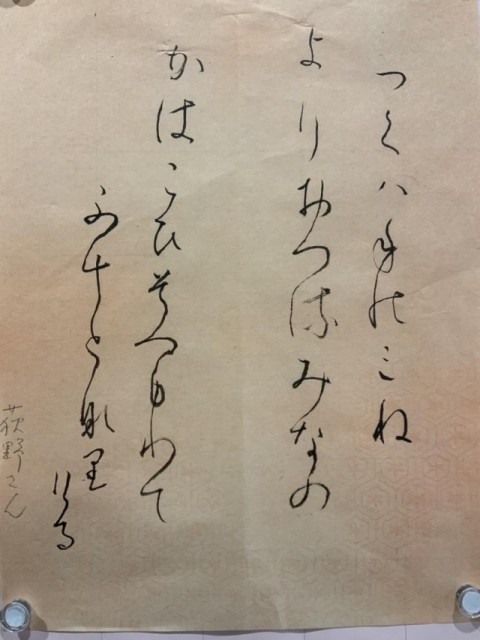 つくハ年能ミね
よりおつ流みなの
かはこひそつもりて
ふちと那里
ける
荻野さん